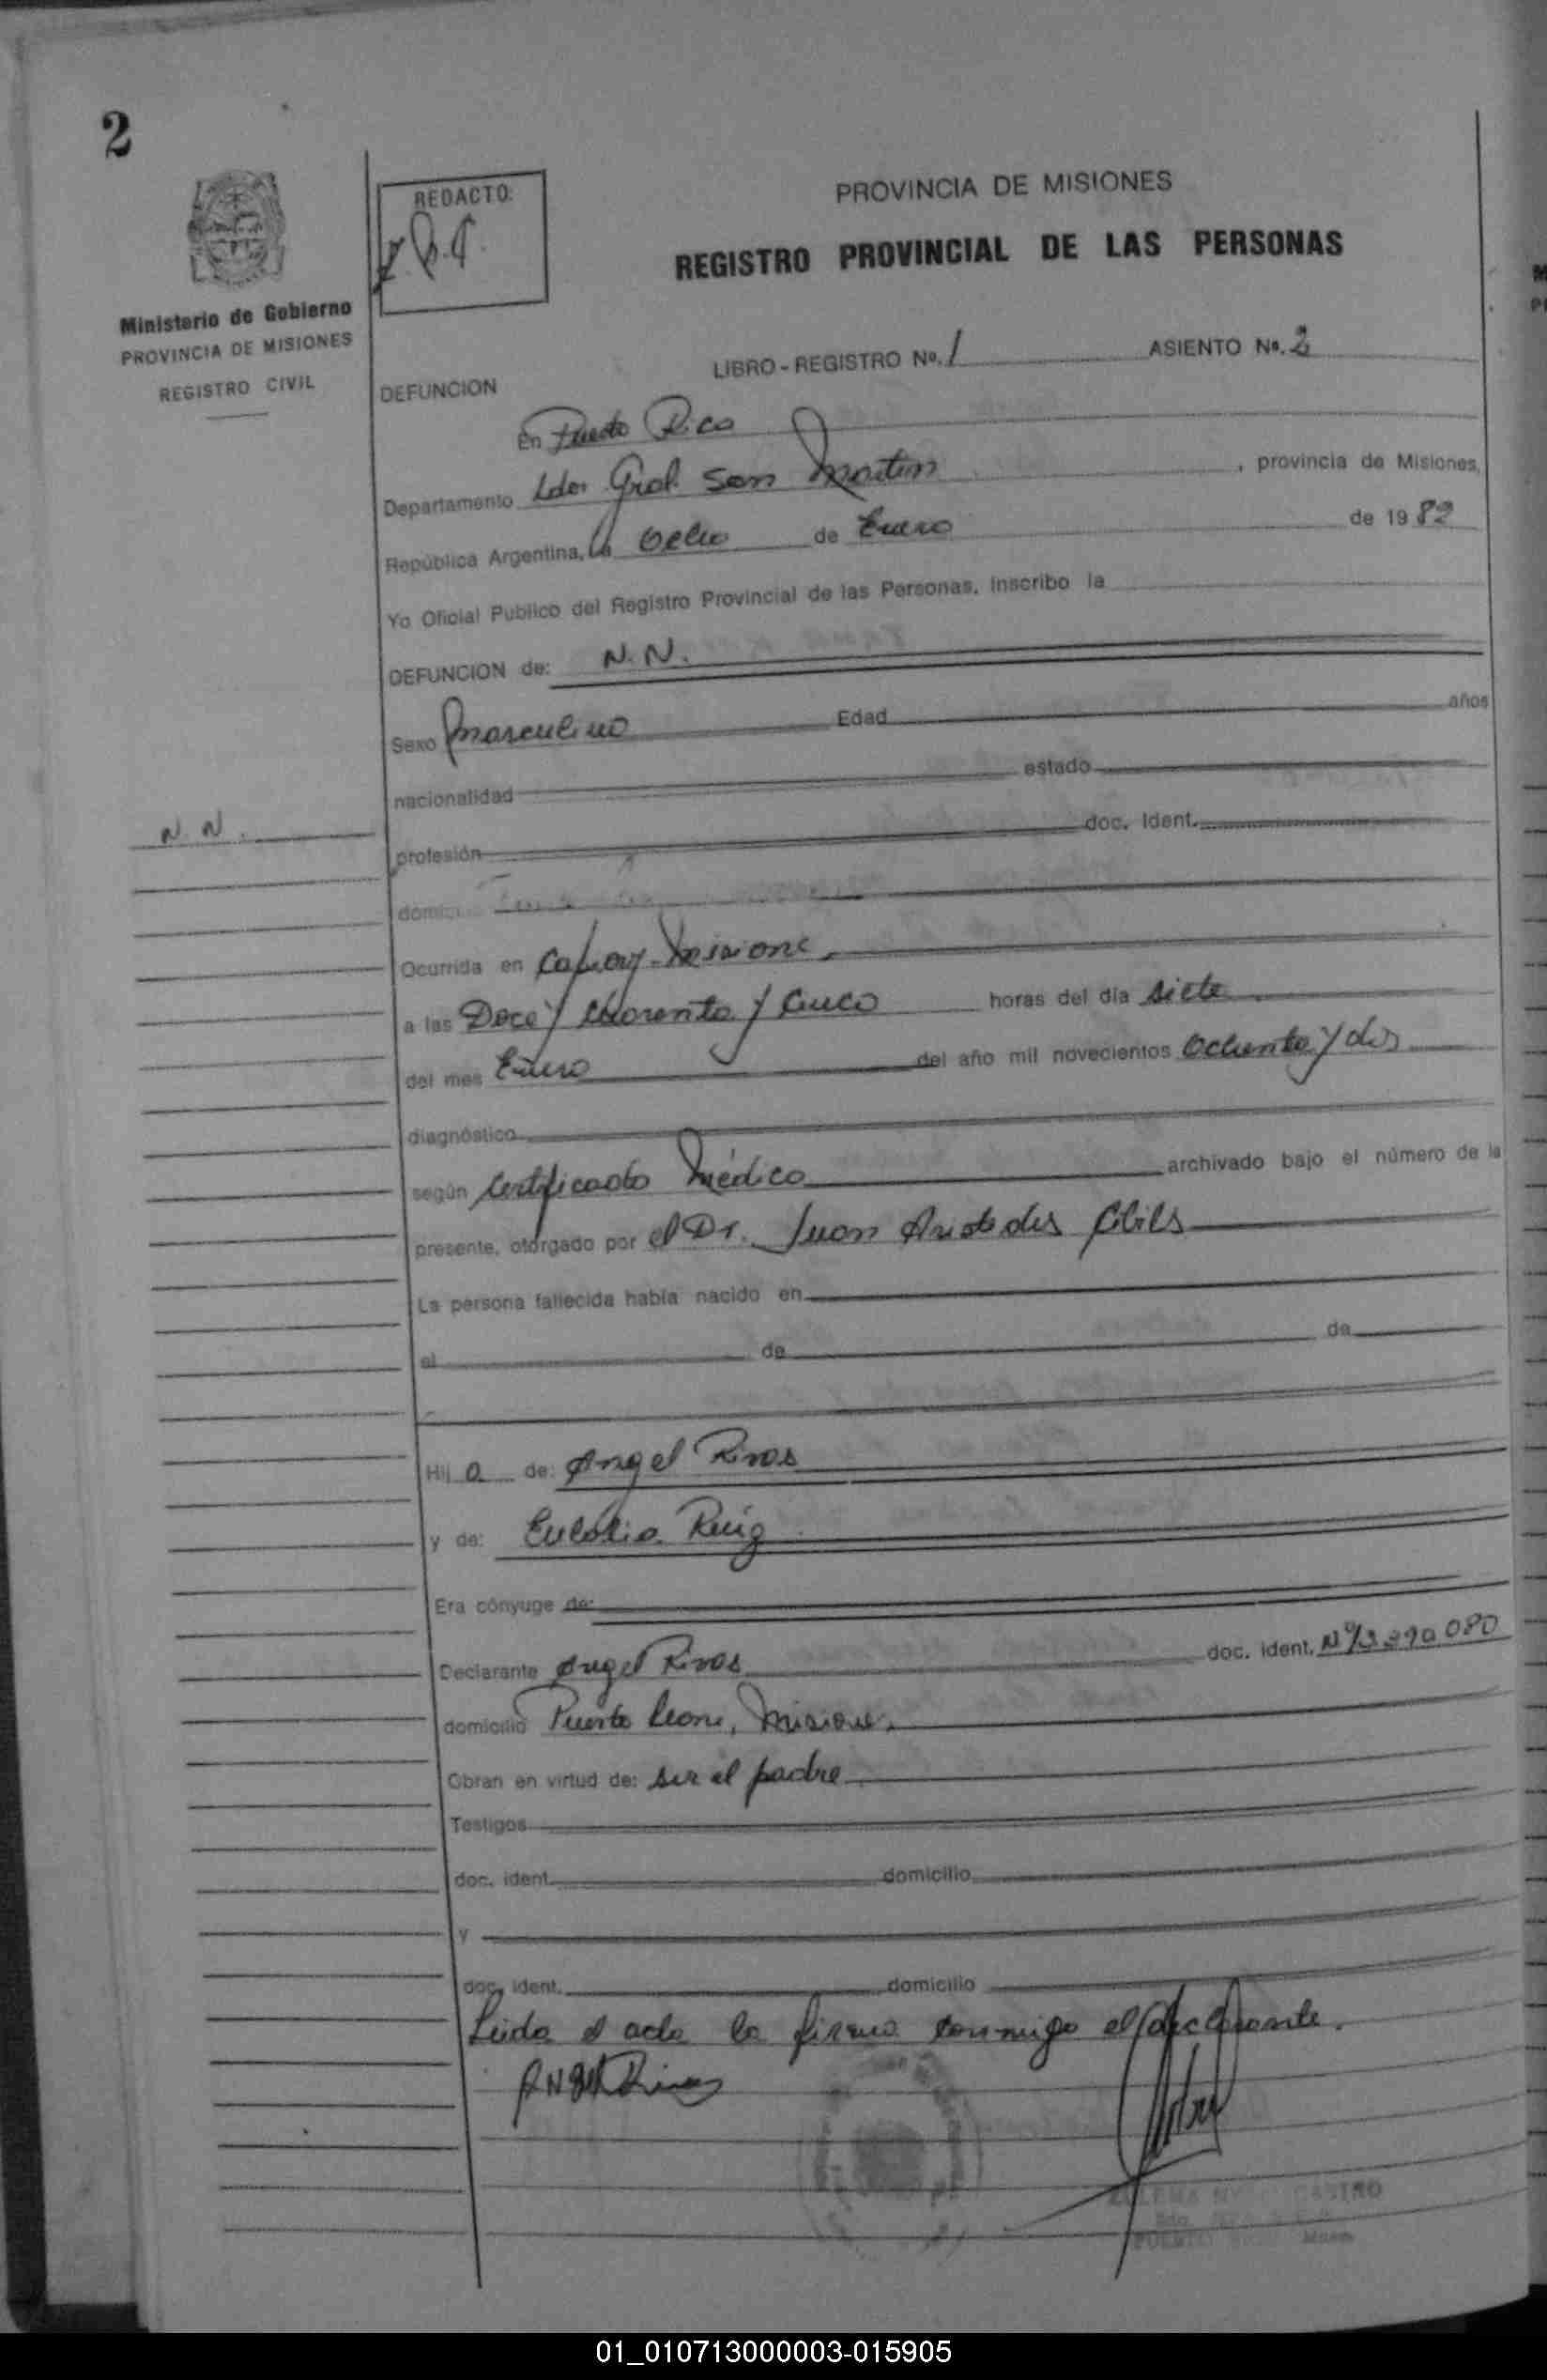 2
REDACTO:
PROVINCIA DE MISIONES
REGISTRO PROVINCIAL DE LAS PERSONAS
Ministerio de Gobierno
PROVINCIA DE MISIONES
REGISTRO CIVIL
LIBRO - REGISTRO No. 1 ASIENTO No. 2
DEFUNCION
En Puerto Rico
Departamento Ldor Gral. San Martin, provincia de Misiones,
República Argentina, a ocho de Enero de 1982
Yo Oficial Publico del Registro Provincial de las Personas, Inscribo la
DEFUNCION de: N.N.
Sexo masculino Edad años
nacionalidad estado
N. N.
profesión doc. Ident.
Ocurrida en Capiovy - Misiones
a las Doce y cuarenta y cinco horas del día siete
del mes Enero del año mil novecientos ochenta y dos
diagnóstico
según certificado Médico archivado bajo el número de la
presente, otorgado por el Dr. Juan Aristides Cibils
La persona fallecida había nacido en
el de de
Hij o de: Angel Rivas
y de: Eulalia Ruiz
Era cónyuge de:
Declarante Angel Rivas doc. ident. Nº
domicilio Puerto Leoni, Misiones.
Obran en virtud de: ser el padre
Testigos
doc. ident. domicilio
y
doc. ident. domicilio
Leida el acta la firma conmigo el declarante.
Angel Rivas
CASTRO